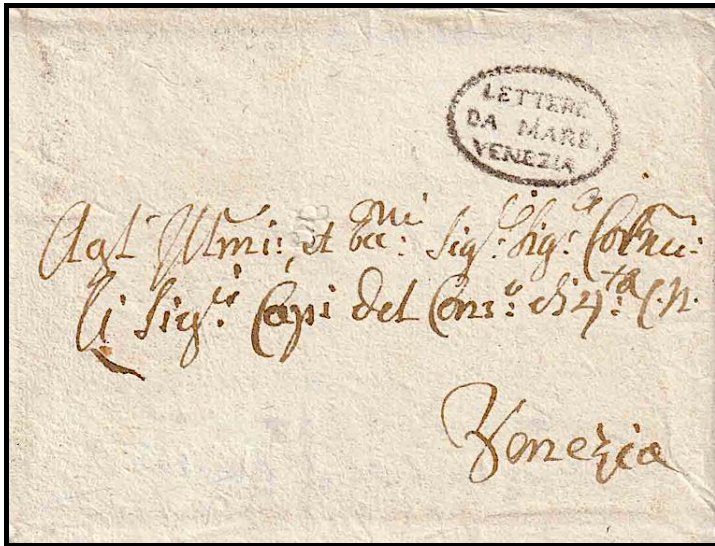 LETTERE
DA MARE.
VENEZIA
Agl' Illmi: et Ecc:mi Sig:ri Sig:ri
li Sig:ri Capi del Cons:o di 4:ta C.N.
Venezia